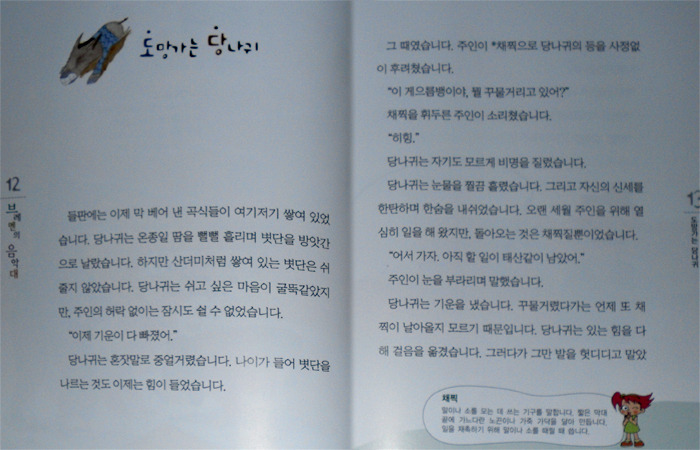 도망가는 당나귀
12
브레멘의 음악대
들판에는 이제 막 베어 낸 곡식들이 여기저기 쌓여 있었
습니다. 당나귀는 온종일 땀을 뻘뻘 흘리며 볏단을 방앗간
으로 날랐습니다. 하지만 산더미처럼 쌓여 있는 볏단은 쉬
줄지 않았습니다. 당나귀는 쉬고 싶은 마음이 굴뚝같았지
만, 주인의 허락 없이는 잠시도 쉴 수 없었습니다.
“이제 기운이 다 빠졌어.”
당나귀는 혼잣말로 중얼거렸습니다. 나이가 들어 볏단을
나르는 것도 이제는 힘이 들었습니다.
그 때였습니다. 주인이 *채찍으로 당나귀의 등을 사정없
이 후려쳤습니다.
“이 게으름뱅이야, 뭘 꾸물거리고 있어?”
채찍을 휘두른 주인이 소리쳤습니다.
“히힝.”
당나귀는 자기도 모르게 비명을 질렀습니다.
당나귀는 눈물을 찔끔 흘렸습니다. 그리고 자신의 신세를
한탄하며 한숨을 내쉬었습니다. 오랜 세월 주인을 위해 열
심히 일을 해 왔지만, 돌아오는 것은 채찍질뿐이었습니다.
“어서 가자. 아직 할 일이 태산같이 남았어.”
주인이 눈을 부라리며 말했습니다.
당나귀는 기운을 냈습니다. 꾸물거렸다가는 언제 또 채
찍이 날아올지 모르기 때문입니다. 당나귀는 있는 힘을 다
해 걸음을 옮겼습니다. 그러다가 그만 발을 헛디디고 말았
13
도망가는 당나귀
채찍
말이나 소를 모는 데 쓰는 기구를 말합니다. 짧은 막대
끝에 가느다란 노끈이나 가죽 가닥을 달아 만듭니다.
일을 재촉하기 위해 말이나 소를 때릴 때 씁니다.